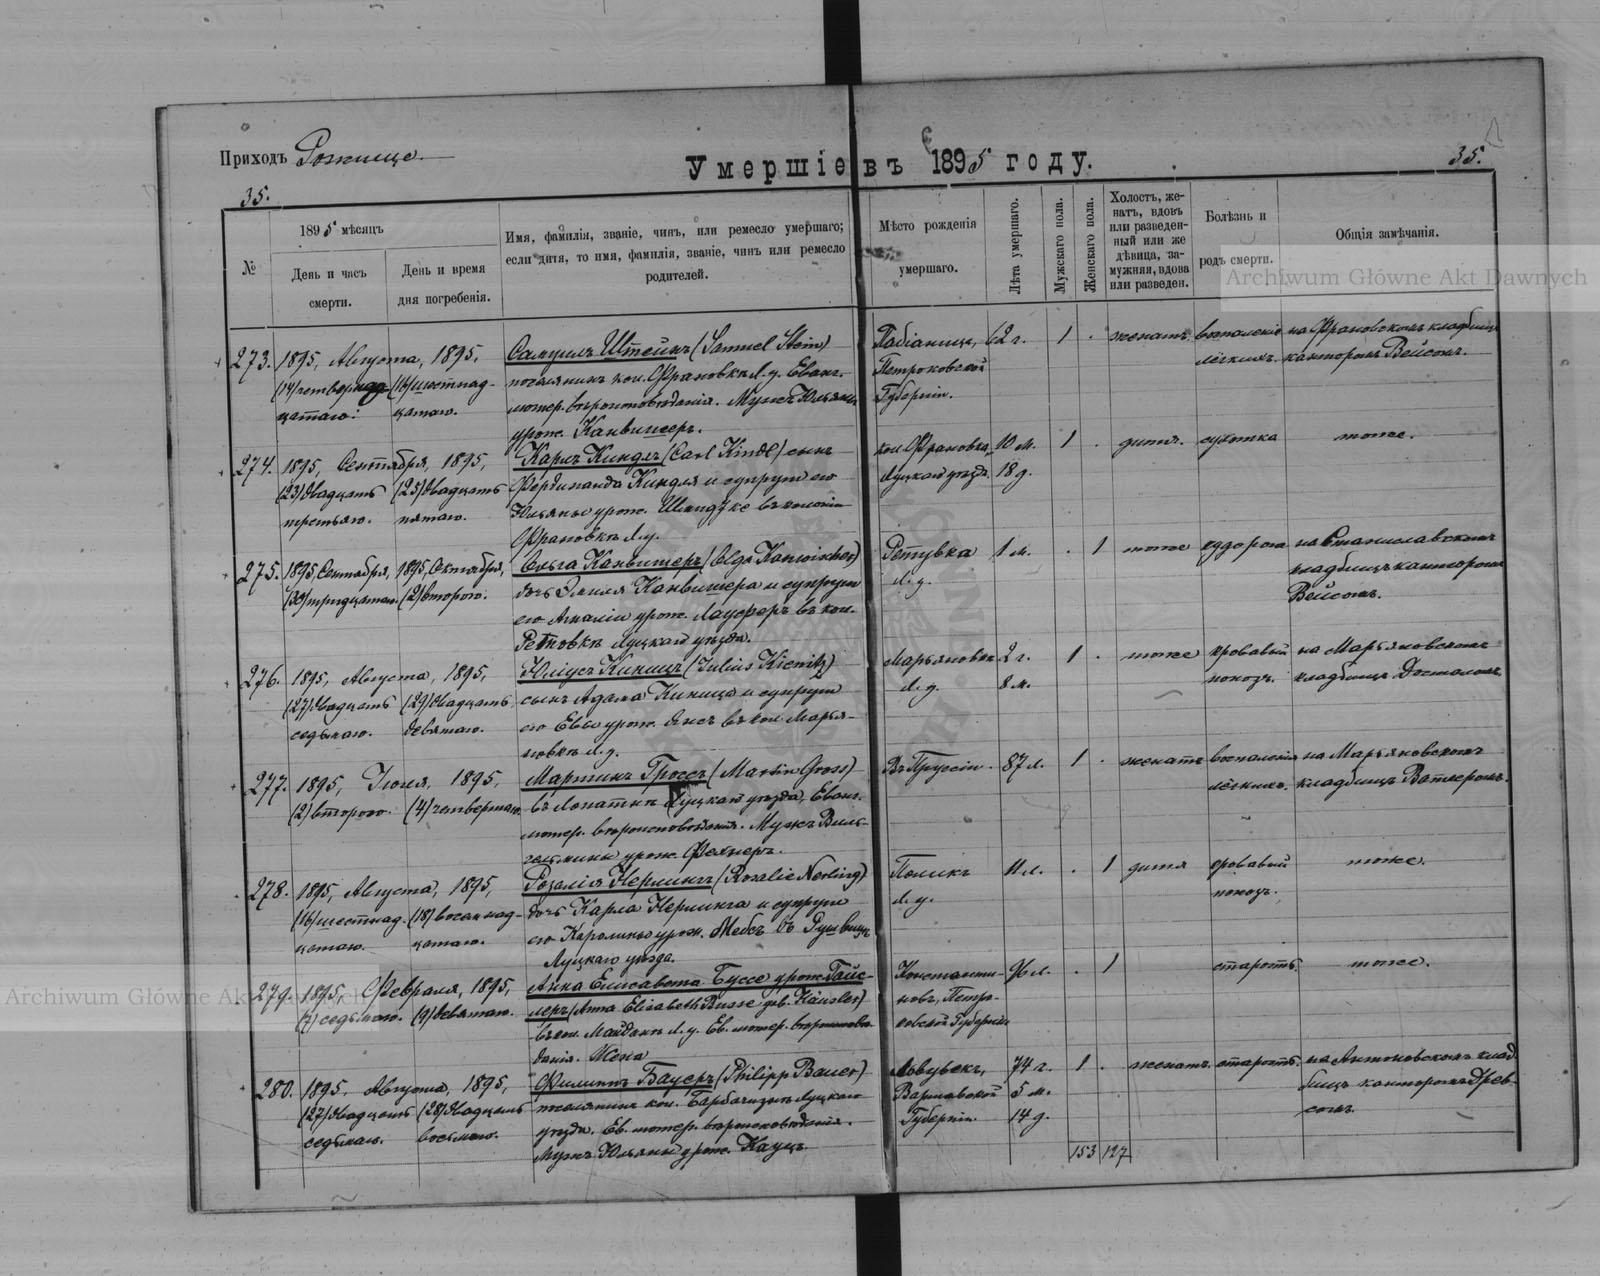 Приходъ Рожище.
Умершіе въ 1895 году.
35.
35.
№
1895 мѣсяцъ
День и часъ смерти.
День и время дня погребенія.
Имя, фамилія, званіе, чинъ, или ремесло умершаго;
если дитя, то имя, фамилія, званіе, чинъ или ремесло
родителей.
Мѣсто рожденія
умершаго.
Лѣта умершаго.
Мужскаго пола.
Женскаго пола.
Холостъ, же-
натъ, вдовъ
или разведен-
ный или же
дѣвица, за-
мужняя, вдова
или разведен.
Болѣзнь и
родъ смерти.
Общія замѣчанія.
Archiwum Główne Akt Dawnych
273. 1895, Августа, 1895, Самуилъ Штейнъ (Samuel Stein) Пабіаница, 62 г. 1 . женатъ. воспаленіе на Франовскомъ кладбищѣ
(14) четверенад- (16) шестнад- поселянинъ кол. Франовка Л. у. Еванг. Петроковской лёгкихъ. канторомъ Вейсомъ.
цатаго. цатаго. лютер. вѣроисповѣданія. Мужъ Юльяны Губерніи.
урож. Канвишеръ.
274. 1895, Сентября, 1895, Карлъ Киндлъ (Carl Kindl) сынъ кол. Франовка, 10 м. 1 . дитя. сухотка тоже.
(23) двадцать (25) двадцать Фердинанда Киндля и супруги его Луцкаго уѣзда 18 д.
третьяго. пятаго. Юльяны урож. въ колоніи
Франовкѣ Л. у.
275. 1895, Сентября, 1895, Октября, Ольга Канвишеръ (Olga Kanwischer) 1 м. . 1 тоже судорога на Станиславскомъ
(30) тридцатаго. (2) второго. дочь Эмиля Канвишера и супруги Л. у. кладбищѣ канторомъ
его Амаліи урож. Лауферъ въ кол. Вейсомъ.
Луцкаго уѣзда.
276. 1895, Августа, 1895, Юліусъ Киницъ (Julius Kienitz) Марьяновка 2 г. 1 . тоже кровавый на Марьяновскомъ
(27) двадцать (29) двадцать сынъ Адама Киница и супруги Л. у. 8 м. поносъ. кладбищѣ
седьмаго. девятаго. его Евы урож. въ кол. Марья-
новкѣ Л. у.
277. 1895, Іюля, 1895, Мартинъ Гроссъ (Martin Gross) Въ Пруссіи. 87 л. 1 . женатъ воспаленіе на Марьяновскомъ
(2) второго. (4) четвертаго. въ Лопатинѣ Луцкаго уѣзда, Еванг. лёгкихъ. кладбищѣ
лютер. вѣроисповѣданія. Мужъ Виль-
гельмины урож. Фехнеръ.
278. 1895, Августа, 1895, Розалія Нерлингъ (Rosalie Nerling) 11 л. . 1 дитя кровавый тоже.
(16) шестнад- (18) восемнад- дочь Карла Нерлинга и супруги Л. у. поносъ.
цатаго. цатаго. его Каролины урож. Мебсъ въ
Луцкаго уѣзда.
Archiwum Główne Akt Dawnych
279. 1895, Февраля, 1895, Анна Елисавета Буссе урож. Гайс- Константи- 96 л. . 1 старость. тоже.
(7) седьмаго. (9) девятаго. леръ (Anna Elisabeth Busse geb. Häusler) новъ, Петро-
въ кол. Майданъ Л. у. Ев. лютер. вѣроисповѣ- ковской Губерніи
данія. Жена
280. 1895, Августа, 1895, Филиппъ Бауеръ (Philipp Bauer) 74 г. 1 . женатъ. старость. на Антоновскомъ клад-
(27) двадцать (28) двадцать поселянинъ кол. Луцкаго Варшавской 5 м. бищѣ канторомъ Древ-
седьмаго. восьмаго. уѣзда. Ев. лютер. вѣроисповѣданія. Губерніи. 14 д. сомъ.
Мужъ Юльяны урож. Кауцъ
153 127